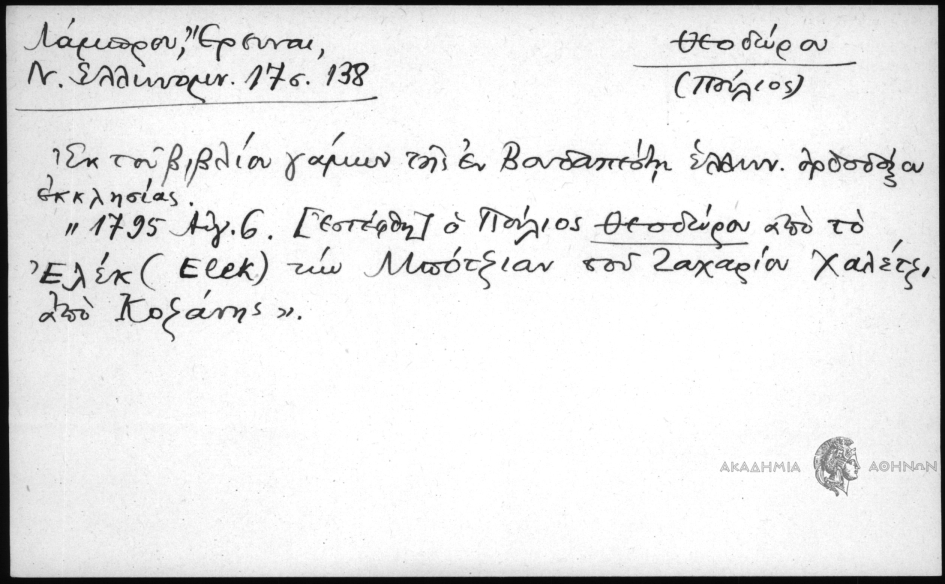 Λάμπρου, Ἔρευναι,
Ν. Ἑλληνομν. 17 σ. 138
Θεοδώρου
(Πούλιος)
Ἐκ τοῦ βιβλίου γάμων τῆς ἐν Βουδαπέστῃ ἑλλην. ὀρθοδόξου
ἐκκλησίας.
" 1795 Αὐγ. 6. [Ἐστέφθη] ὁ Πούλιος Θεοδώρου ἀπὸ τὸ
Ἐλέκ (Elek) τὴν Μπότζιαν τοῦ Ζαχαρίου Χαλέτζι,
ἀπὸ Κοζάνης».
ΑΚΑΔΗΜΙΑ ΑΘΗΝΩΝ